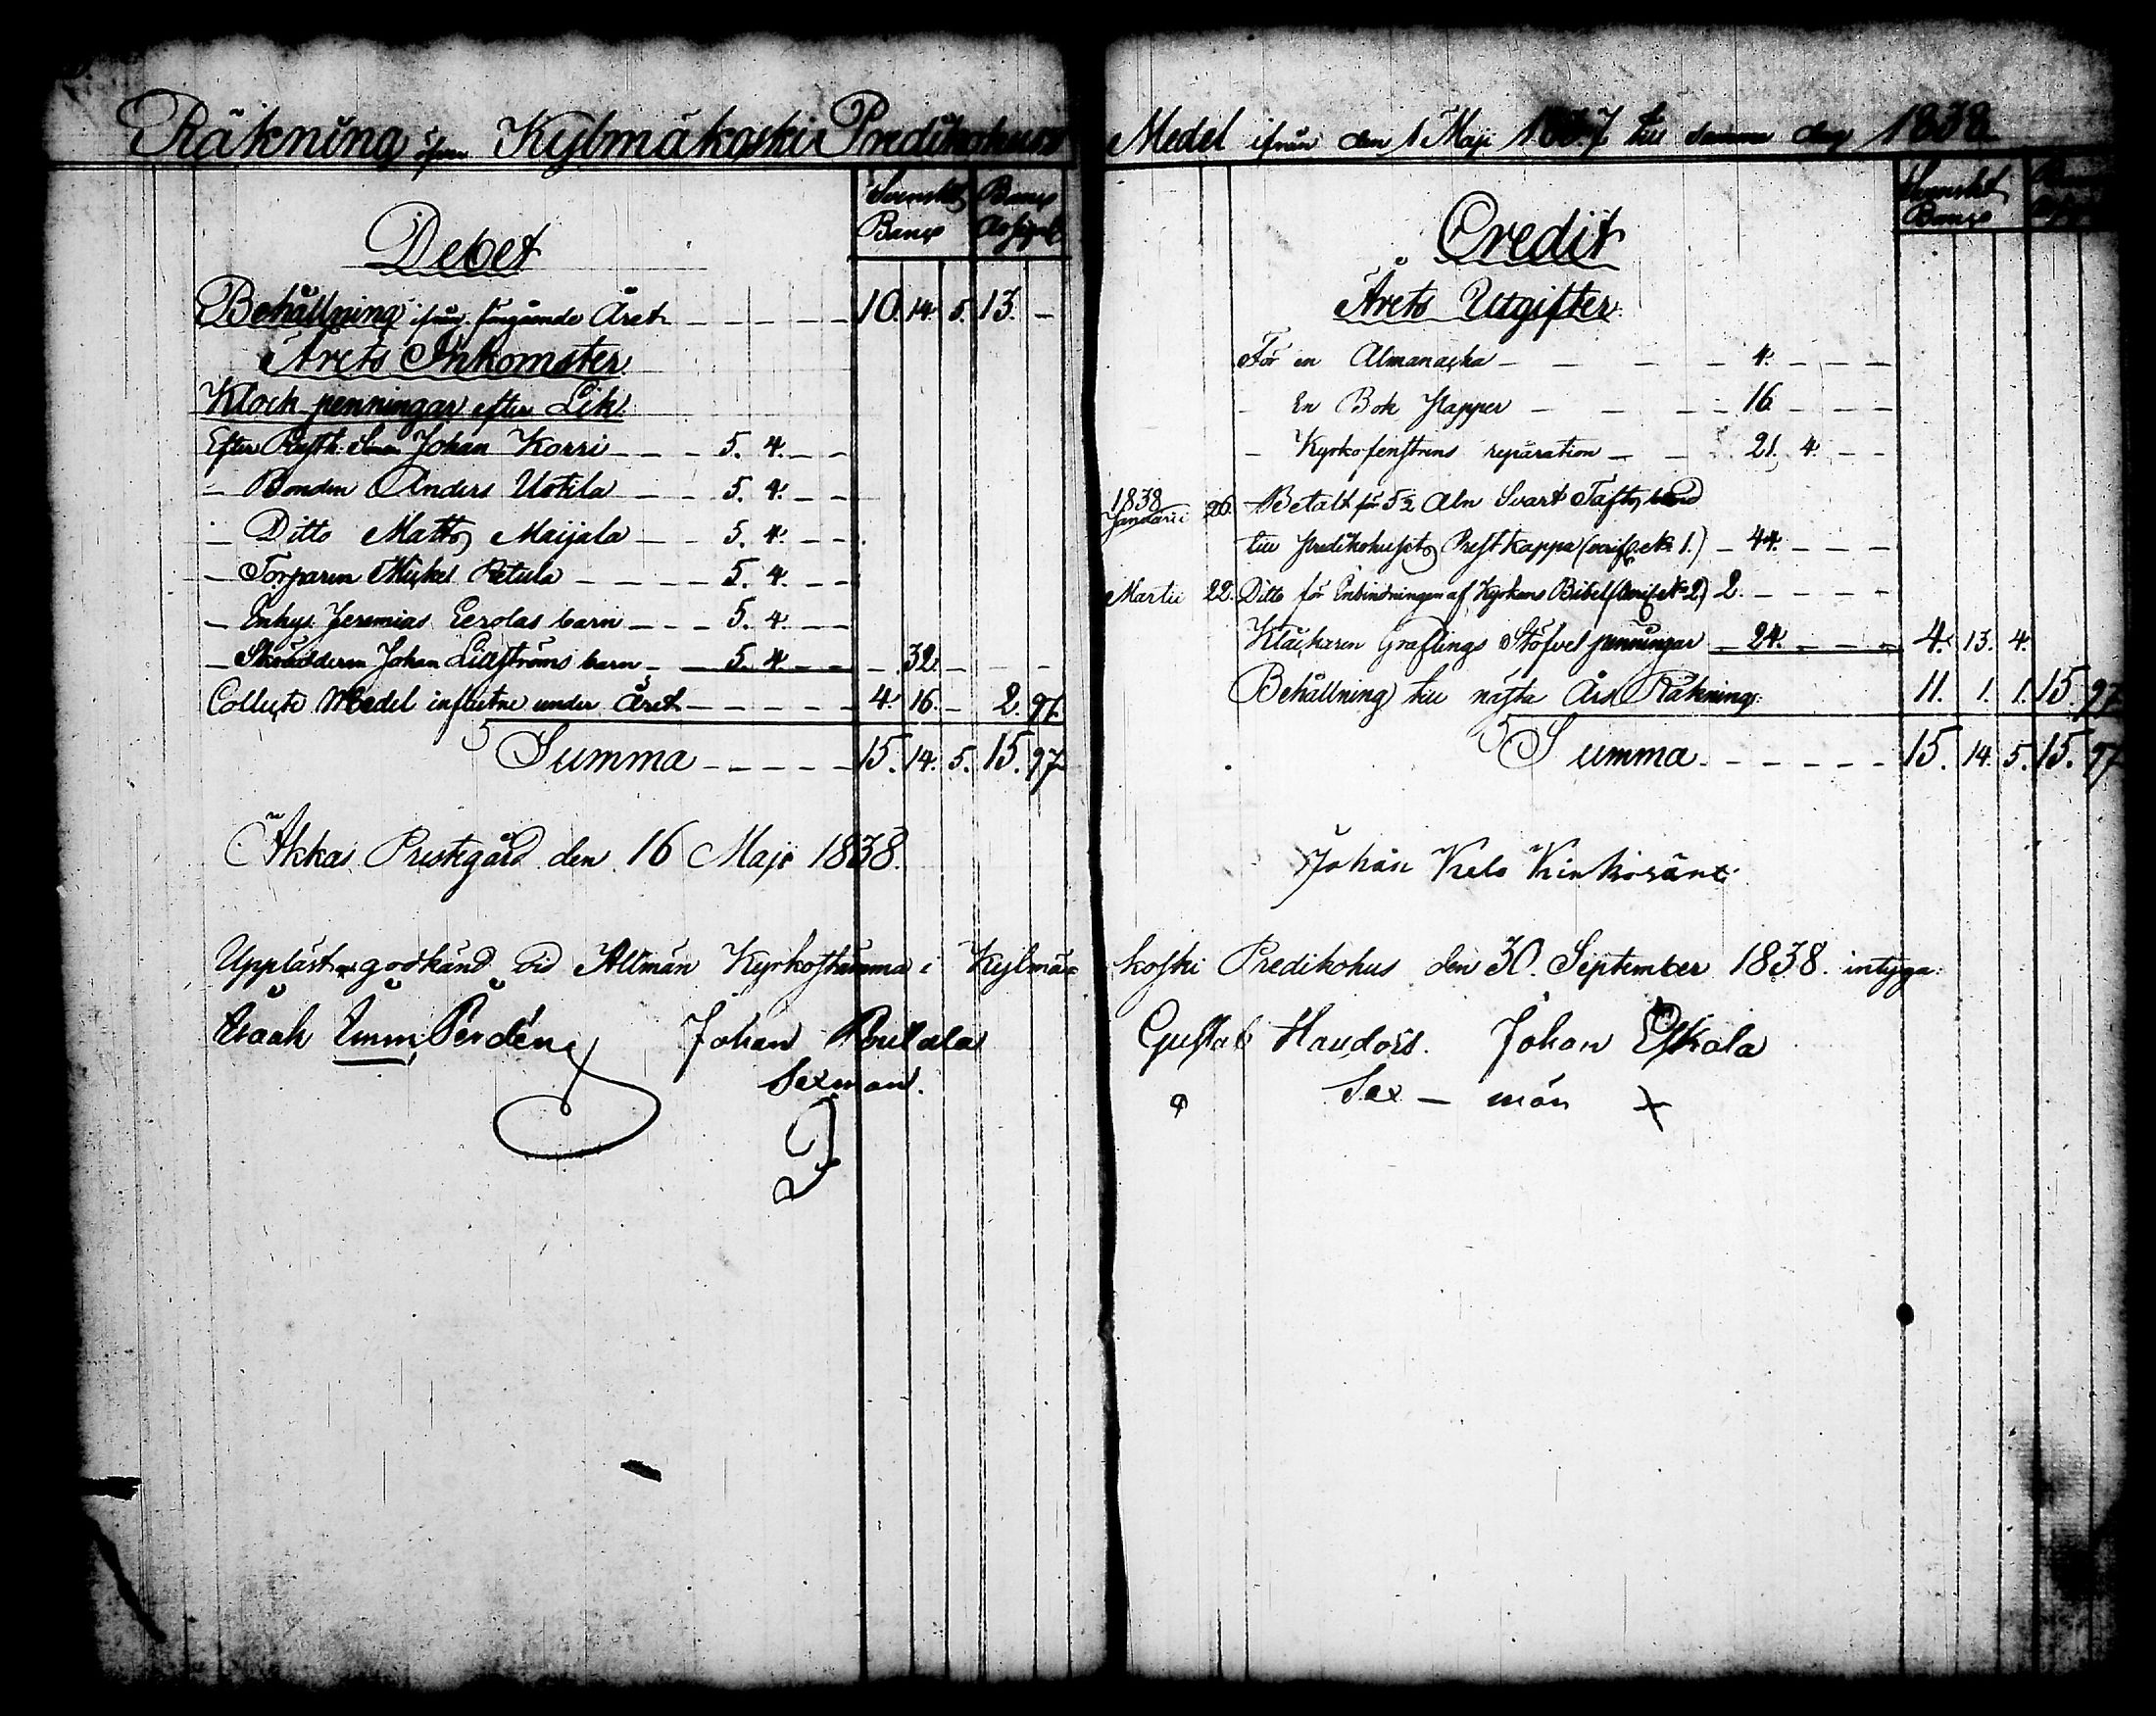 Räkning öfver Kylmäkoski Predikohus
Svenskt Banco
Banco Assignat
Debet
Behållning ifrån föregående Året — — — — 10. 14. 5. 13. —
Årets Inkomster
Klock penningar efter Lik
Efter Johan Korri — — — 5. 4. — —
— Bonden Anders Uotila — — 5. 4. — —
— Ditto Matts Maijala — — 5. 4. — —
— Torparen Mickel Retula — — — — 5. 4. — —
— Enhys Jeremias Eerolas barn — — — 5. 4. — —
— Skräddaren Johan Lillströms barn — — 5. 4 — — — 32. — — —
Collect Medel influtne under Året — — — — — 4. 16. — 2. 97.
Summa — — — — — 15. 14. 5. 15. 97
Akkas Prestegård den 16 Maji 1838.
Uppläst och godkänd vid Allmän Kyrkostämma i Kylmä-
Isaak Emm. Perdén Johan
Sexman.
Medel ifrån den 1 Maji 1837 till samma dag 1838
Svenskt Banco
Credit
Årets Utgifter
För en Almanacka — — — — 4. — — —
— En Bok Papper — — — — 16 — — —
— Kyrkofenstrens reparation — — 21. 4. — —
1838
Januarii 26. Betalt för 5½ Aln Svart Tafts band
till Predikohusets Prest Kappa (verif. No 1.) — 44. — — —
Martii 22. Ditto för Inbindningen af Kyrkans Bibel (Verif. No 2) 2. — — — —
Klåckaren Graflings Stöfvel penningar — 24. — — — 4. 13. 4.
Behållning till nästa Års Räkning. 11. 1. 1. 15. 97
Summa — — — — — 15. 14. 5. 15. 97
Johan Kelo
koski Predikohus den 30. September 1838. intyga:
Gustaf Johan Eskola
Sex — män